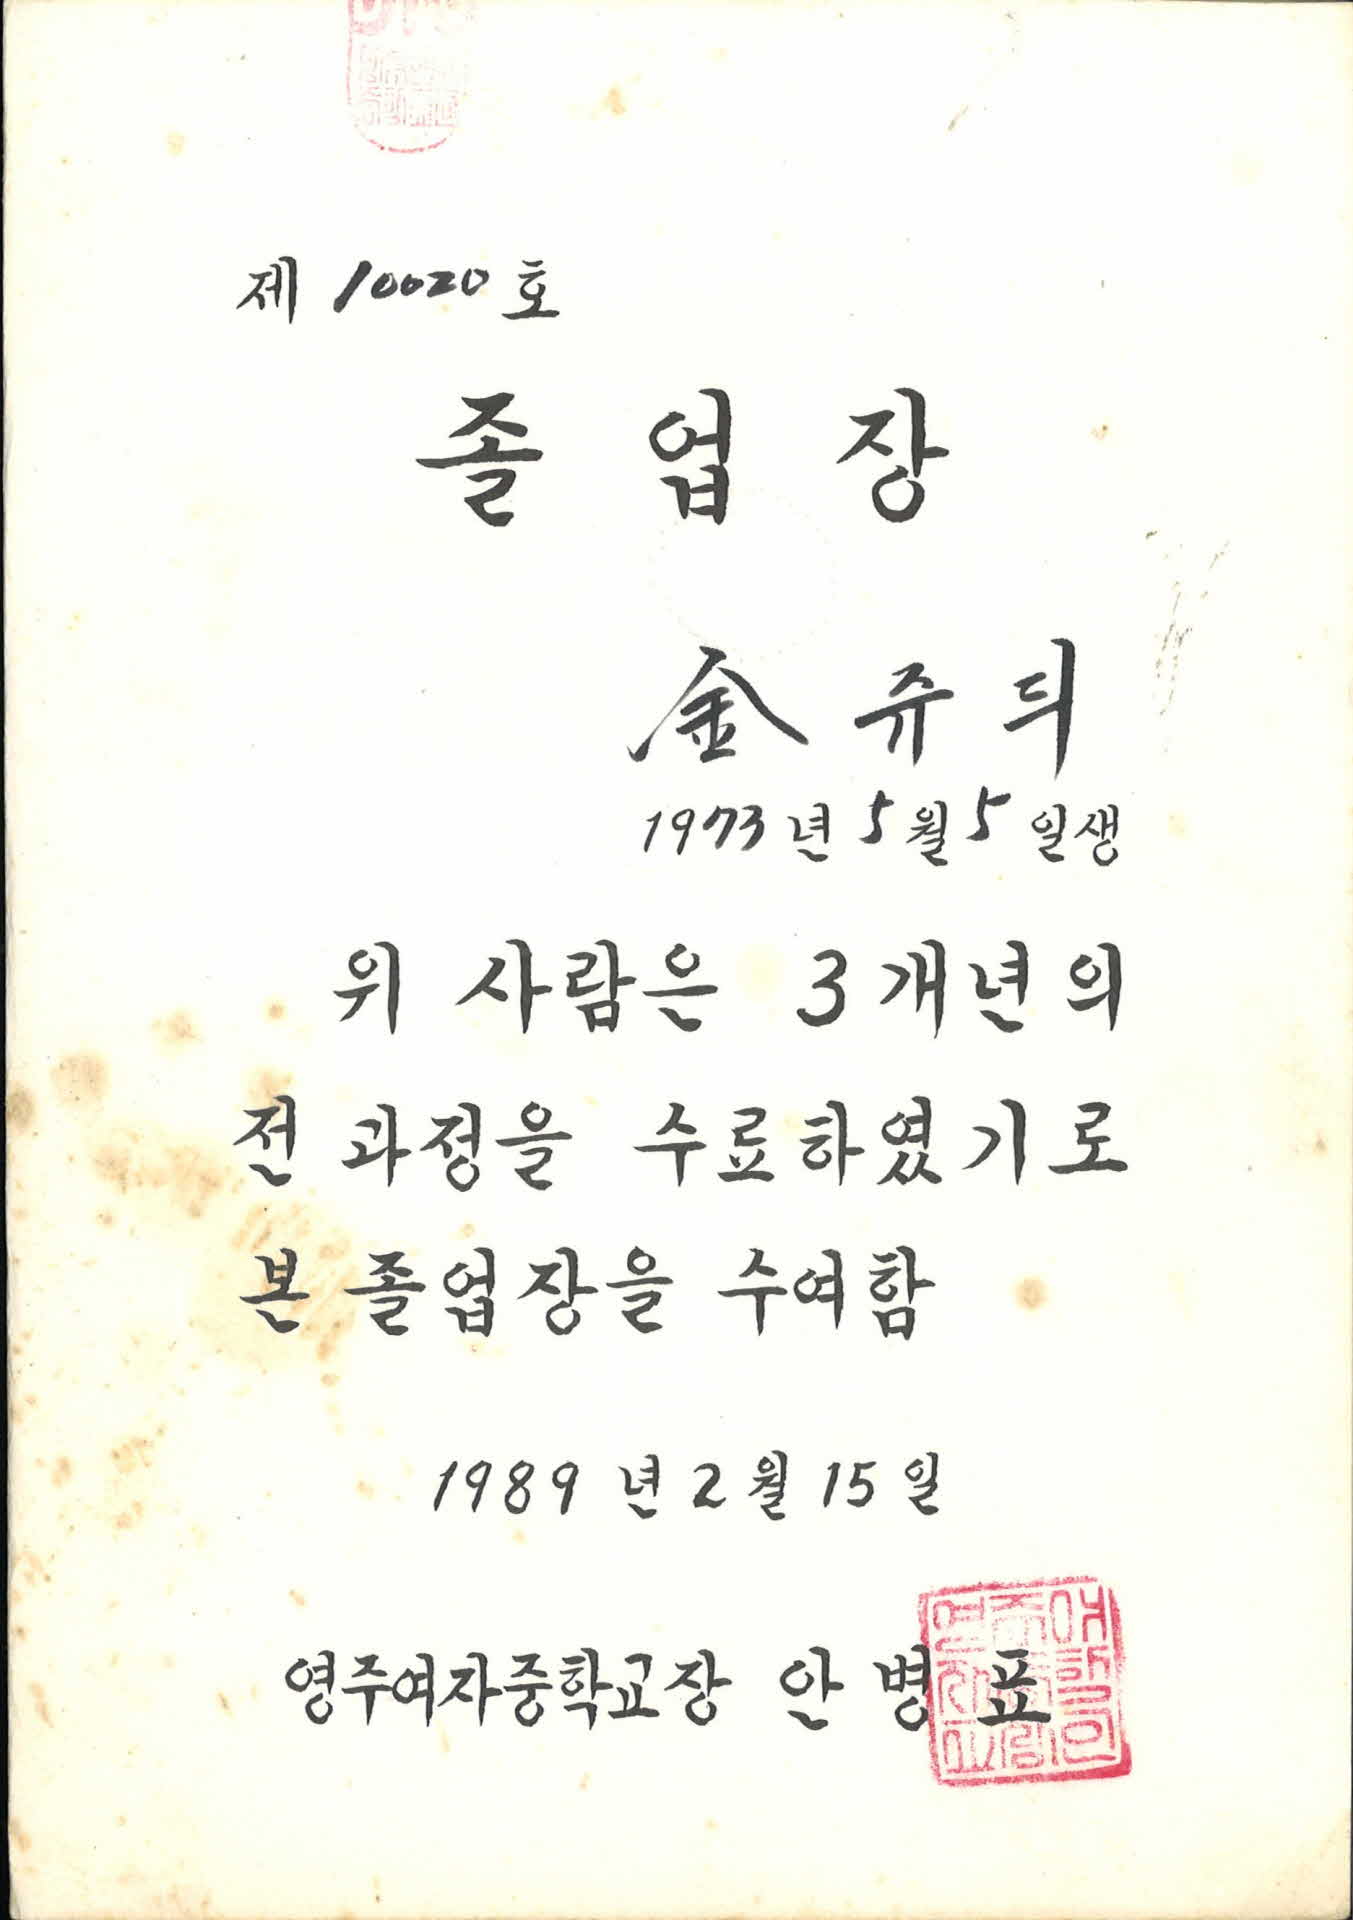 제 10020 호
졸 업 장
金 쥬 듸
1973 년 5 월 5 일생
위 사람은 3 개년의
전 과정을 수료하였기로
본 졸업장을 수여함
1989 년 2 월 15 일
영주여자중학교장 안 병 표